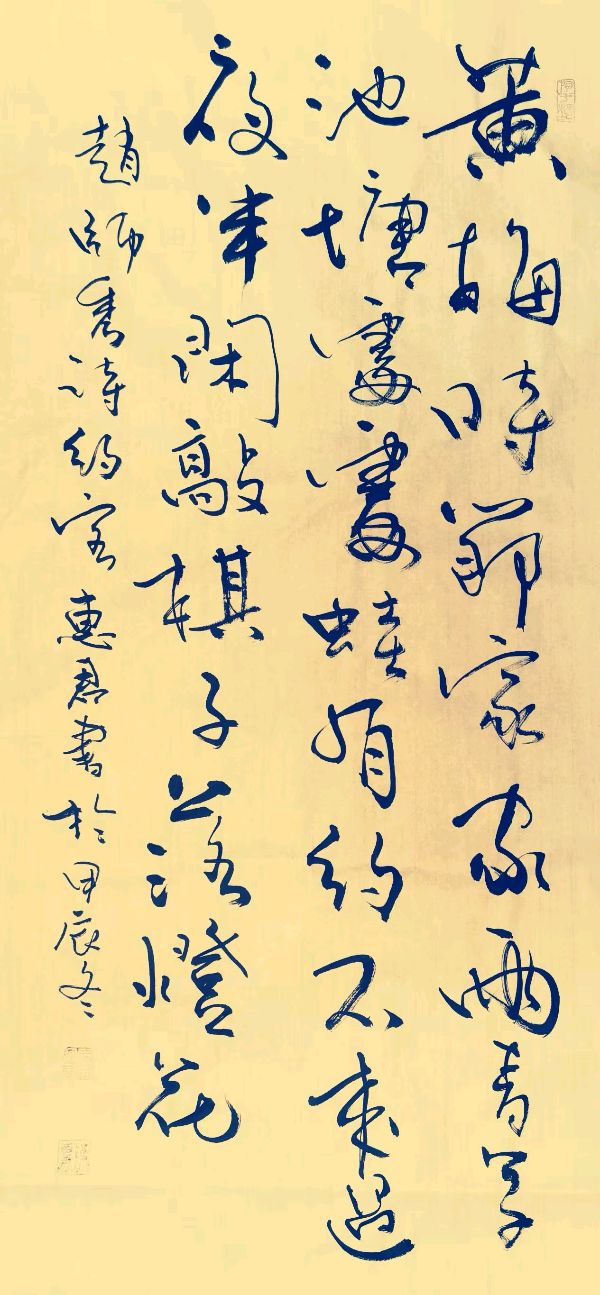 黄梅時節家家雨青草
池塘處處蛙有約不来過
夜半閑敲棋子落燈花
趙師秀詩約客惠君書於甲辰冬